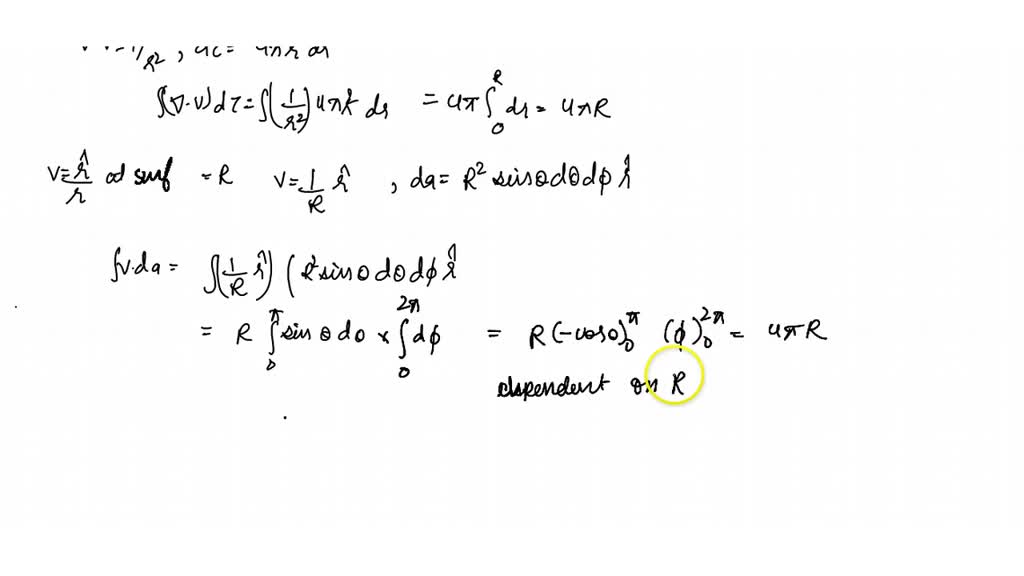 ∫(∇·v)dτ = ∫(1/r²) 4πr² dr = 4π ∫₀ᴿ dr = 4πR
v = r̂/r at surf = R   v = 1/R r̂ , da = R² sinθdθdϕ r̂
∫v·da = ∫(1/R r̂) (R² sinθ dθ dϕ r̂
= R ∫₀^π sin θ dθ × ∫₀^2π dϕ = R (-cosθ)₀^π (ϕ)₀^2π = 4πR
dependent on R